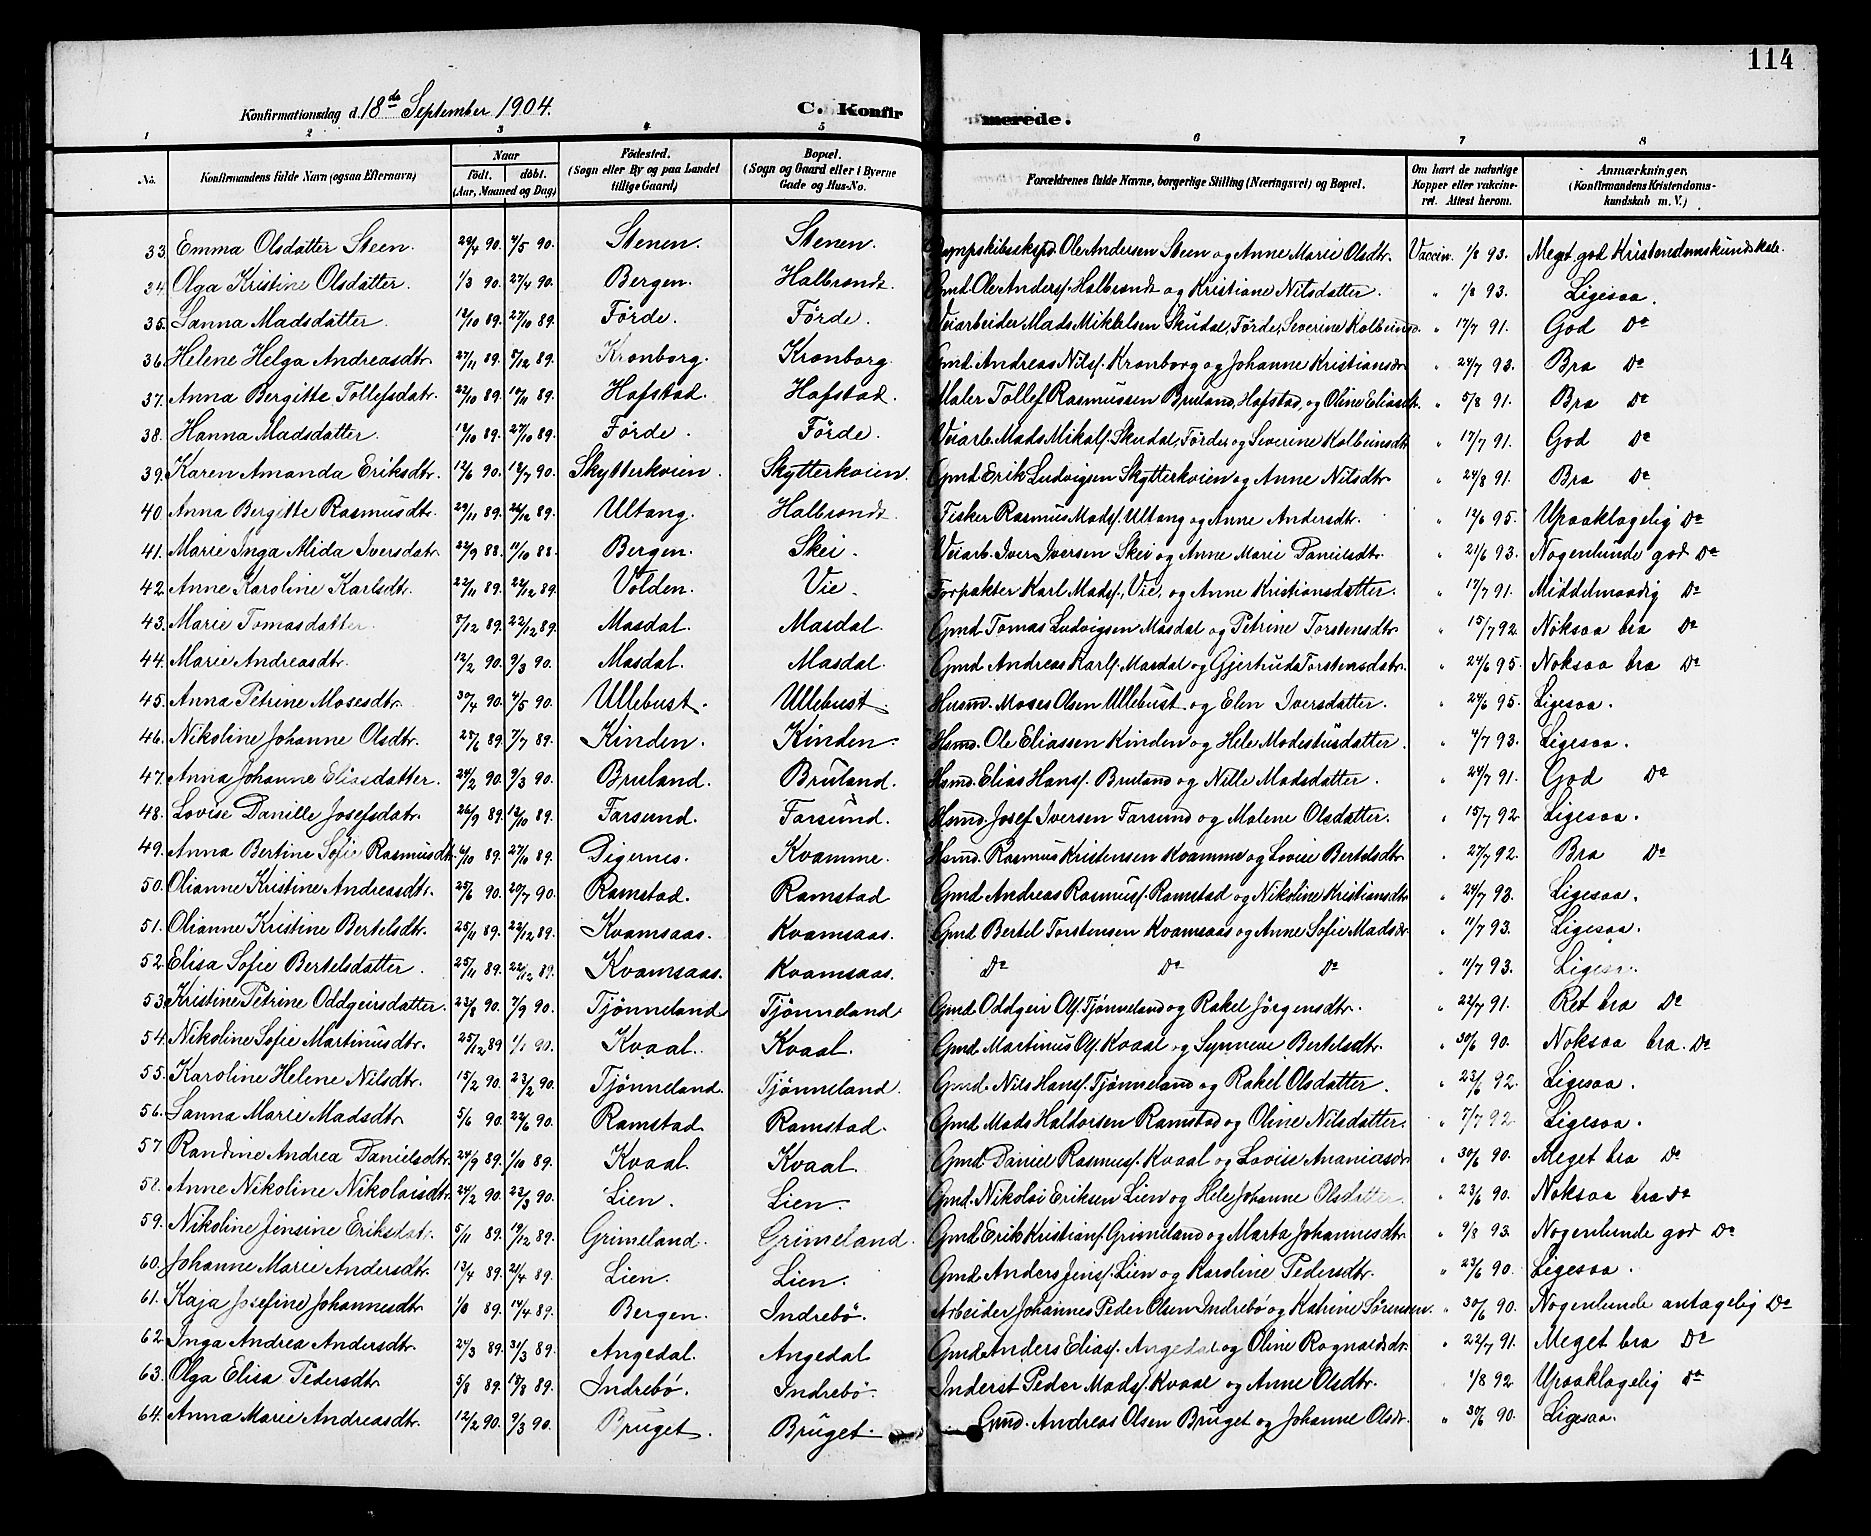 114
Konfirmationsdag d. 18de September 1904.
C. Konfirmerede.
1 2 3 4 5 6 7 8
No. | Konfirmandens fulde Navn (ogsaa Efternavn) | Naar födt. döbt. (Aar, Maaned og Dag) | Födested. (Sogn eller By og paa Landet tillige Gaard) | Bopæl. (Sogn og Gaard eller i Byerne Gade og Hus-No. | Forældrenes fulde Navne, borgerlige Stilling (Næringsvei) og Bopæl. | Om havt de naturlige Kopper eller vakcineret. Attest herom. | Anmærkninger, (Konfirmandens Kristendomskundskab m. V.)
33. Emma Olsdatter Steen. 29/4 90. 4/5 90. Stenen. Stenen. Ole Andersen Steen og Anne Marie Olsdtr. Vaccin. 1/8 93. Meget god Kristendomskundskab.
34. Olga Kristine Olsdatter. 1/3 90. 27/4 90. Bergen. Halbrendt. Gmd. Ole Anders. Halbrendt og Kristiane Nilsdatter. " 1/8 93. Ligesaa.
35. Sanna Madsdatter. 12/10 89. 27/10 89. Förde. Förde. Veiarbeider Mads Mikkelsen Skudal, Förde, Severine Kolbeinsd. " 17/7 91. God Do
36. Helene Helga Andreasdtr. 27/11 89. 8/12 89. Kronborg. Kronborg. Gmd. Andreas Nils. Kronborg og Johanne Kristiansdr " 24/7 93. Bra Do
37. Anna Bergitte Tollefsdatr. 22/10 89. 17/11 89. Hafstad. Hafstad. Maler Tollef Rasmussen Bruland, Hafstad, og Oline Eliasdt. " 5/8 91. Bra Do
38. Hanna Madsdatter. 12/10 89. 27/10 89. Förde. Förde. Veiarb. Mads Mikals. Skudal, Förde, og Severine Kolbeinsdtr " 17/7 91. God Do
39. Karen Amanda Eriksdtr. 12/6 90. 13/7 90. Skytterkveien. Skytterkveien. Gmd. Erik Ludvigsen Skytterkveien og Anne Nilsdtr " 24/8 91. Bra Do
40. Anna Bergitte Rasmusdtr. 29/11 89. 26/12 89. Ultang. Halbrendt. Fisker Rasmus Mads. Ultang og Anne Andersdtr. " 12/6 95. Upaaklagelig Do
41. Marie Inga Alida Iversdatr. 22/9 88. 11/10 88. Bergen. Skei. Veiarb. Iver Iversen Skei og Anne Marie Danielsdtr. " 21/6 93. Nogenlunde god Do
42. Anne Karoline Karlsdtr. 22/11 89. 22/12 89. Volden. Vie. Forpakter Karl Mads., Vie, og Anne Kristiansdatter. " 17/7 91. Middelmaadig Do
43. Marie Tomasdatter 8/12 89. 22/12 89. Masdal. Masdal. Gmd. Tomas Ludvigsen Masdal og Petrine Torstensdtr. " 15/7 92. Noksaa bra Do
44. Marie Andreasdtr. 12/2 90. 9/3 90. Masdal. Masdal. Gmd. Andreas Karls. Masdal og Gjertrud Torstensdatr. " 24/6 95. Noksaa bra Do
45. Anna Petrine Mosesdtr. 30/4 90. 4/5 90. Ullebust. Ullebust. Husmd. Moses Olsen Ullebust og Elen Iversdatter. " 24/6 95. Ligesaa.
46. Nikoline Johanne Olsdtr. 28/6 89. 7/7 89. Kinden. Kinden. Hsmd. Ole Eliassen Kinden og Hele Modestusdatter. " 4/7 93. Ligesaa.
47. Anna Johanne Eliasdatter. 24/2 90. 9/3 90. Bruland. Bruland. Hsmd. Elias Hans. Bruland og Nille Madsdatter. " 24/7 91. God Do
48. Lovise Danille Josefsdatr. 26/9 89. 13/10 89. Farsund. Farsund. Hsmd. Josef Iversen Farsund og Malene Olsdatter. " 15/7 92. Ligesaa.
49. Anna Bertine Sofie Rasmusdtr. 6/10 89. 27/10 89. Digernes. Kvamme. Hsmd. Rasmus Kristensen Kvamme og Lovise Bertelsdtr " 27/7 92. Bra Do
50. Olianne Kristine Andreasdtr. 25/6 90. 20/7 90. Ramstad. Ramstad Gmd. Andreas Rasmus. Ramstad og Nikoline Kristiansdtr " 24/7 93. Ligesaa.
51. Olianne Kristine Bertelsdtr. 25/11 89. 22/12 89. Kvamsaas. Kvamsaas. Gmd. Bertel Torstensen Kvamsaas og Anne Sofie Madsdr. " 11/7 93. Ligesaa.
52. Elisa Sofie Bertelsdatter. 25/11 89. 22/12 89. Kvamsaas. Kvamsaas. Do Do Do " 11/7 93. Ligesaa.
53. Kristine Petrine Oddgeirsdatter. 23/8 90. 7/9 90. Tjønneland Tjønneland Gmd. Oddgeir Ols. Tjønneland og Rakel Jörgensdtr. " 22/7 91. Ret bra Do
54. Nikoline Sofie Martinusdtr. 25/12 89 1/1 90. Kvaal. Kvaal. Gmd. Martinus Ols. Kvaal og Synneve Bertelsdtr. " 30/6 90. Noksaa bra. Do
55. Karoline Helene Nilsdtr. 15/2 90. 23/2 90. Tjønneland. Tjønneland. Gmd. Nils Hans. Tjønneland og Rakel Olsdatter. " 23/6 92. Ligesaa.
56. Sanna Marie Madsdtr 5/6 90. 22/6 90. Ramstad Ramstad. Gmd. Mads Haldorsen Ramstad og Oline Nilsdatter. " 7/7 92. Ligesaa.
57. Randine Andrea Danielsdtr. 24/9 89. 1/10 89. Kvaal. Kvaal. Gmd. Daniel Rasmus. Kvaal og Lovise Ananiasdr. " 30/6 90. Meget bra Do
58. Anne Nikoline Nikolaisdtr. 24/2 90. 23/3 90. Lien. Lien. Gmd. Nikolai Eriksen Lien og Hele Johanne Olsdatter " 23/6 90. Noksaa bra Do
59. Nikoline Jensine Eriksdatr. 5/11 89. 19/12 89. Grimeland. Grimeland. Gmd. Erik Kristians. Grimeland og Marta Johannesdtr. " 9/8 93. Nogenlunde god Do
60. Johanne Marie Andersdtr. 13/4 89. 21/4 89. Lien. Lien. Gmd. Anders Jens. Lien og Karoline Pedersdtr. " 23/6 90. Ligesaa.
61. Kaja Josefine Johannesdtr 89. 14/4 89. Bergen. Indrebö. Arbeider Johannes Peder Olsen Indrebö og Katrine Sörensen. " 30/6 90. Nogenlunde antagelig Do
62. Inga Andrea Andersdtr. 24/3 89. 31/3 89. Angedal. Angedal Gmd. Anders Elias. Angedal og Oline Rognaldsdtr. " 22/7 91. Meget bra Do
63. Olga Elisa Pedersdtr 5/8 89. 18/8 89. Indrebö. Indrebö. Inderst Peder Mads. Kvaal og Anne Olsdtr. " 1/8 92. Upaaklagelig Do
64. Anna Marie Andreasdtr. 12/2 90. 9/3 90. Bruget. Bruget. Gmd. Andreas Olsen Bruget og Johanne Olsdr. " 30/6 90. Ligesaa.